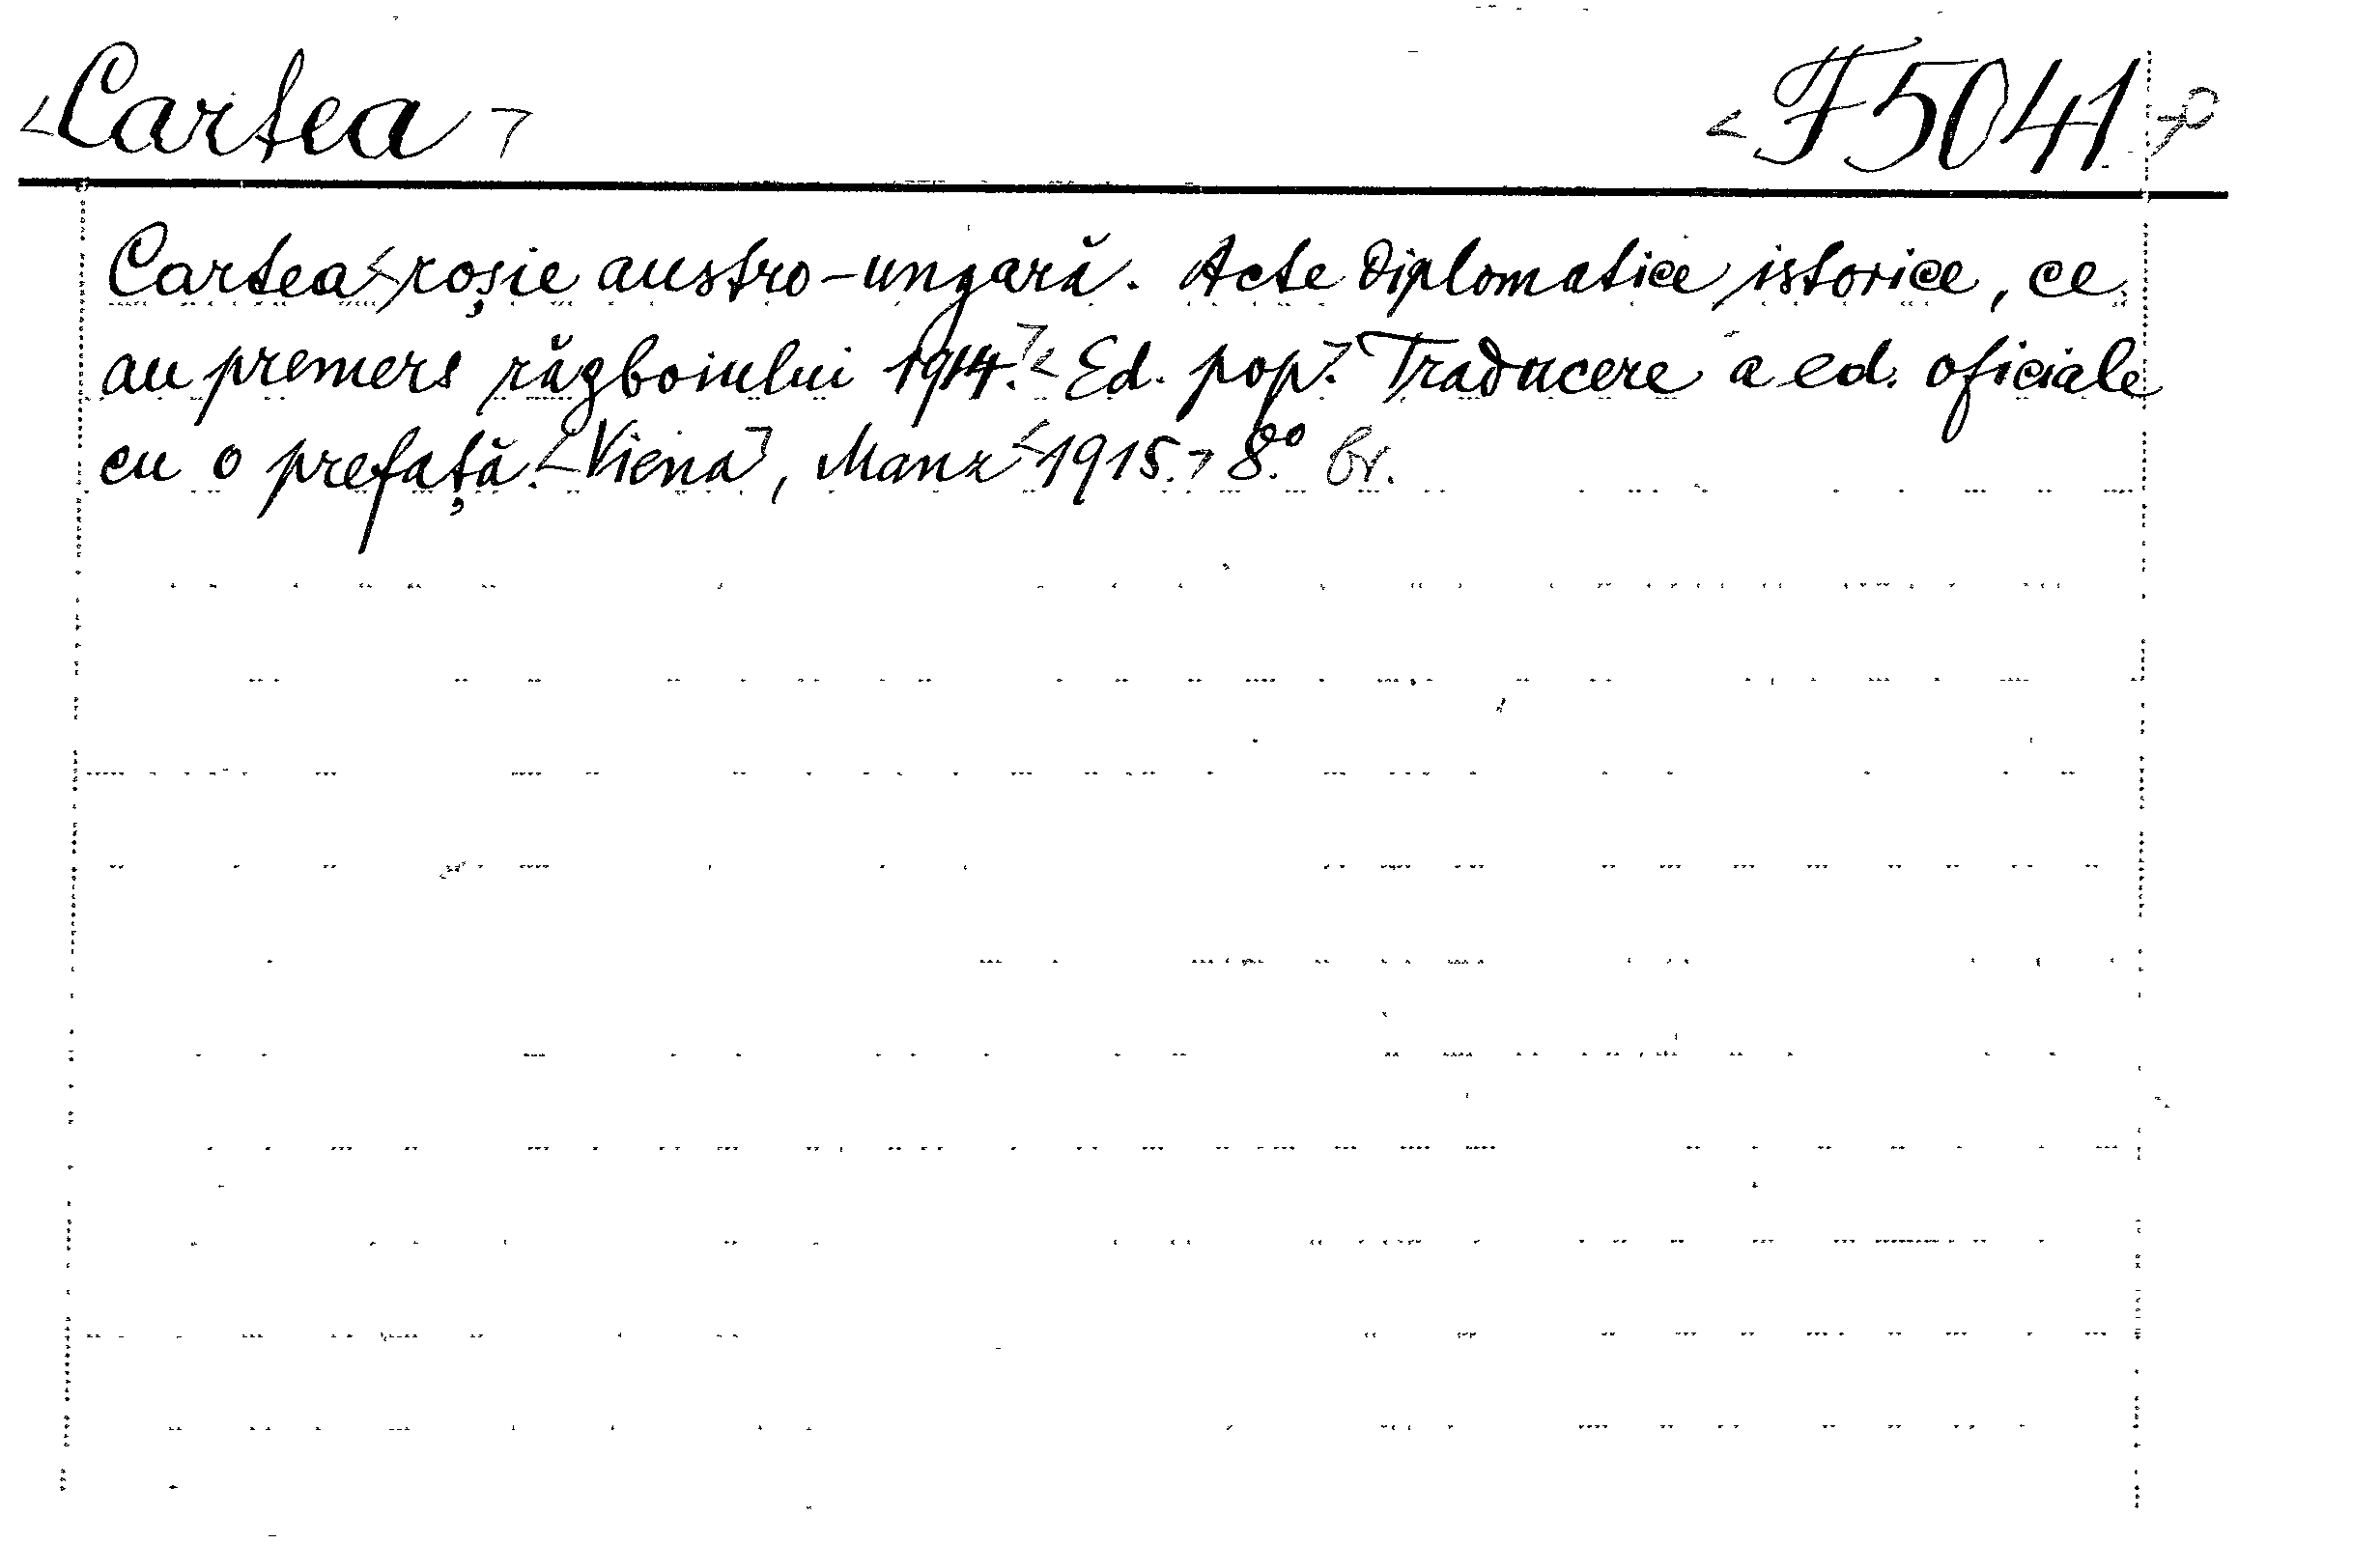 <Cartea> <F5041>
Cartea <roșie austro-ungară. Acte diplomatice istorice, ce
au premers războiului 1914.> <Ed. pop.> Traducere a ed. oficiale
cu o prefață. <Viena>, Manz <1915.> 8.º br.